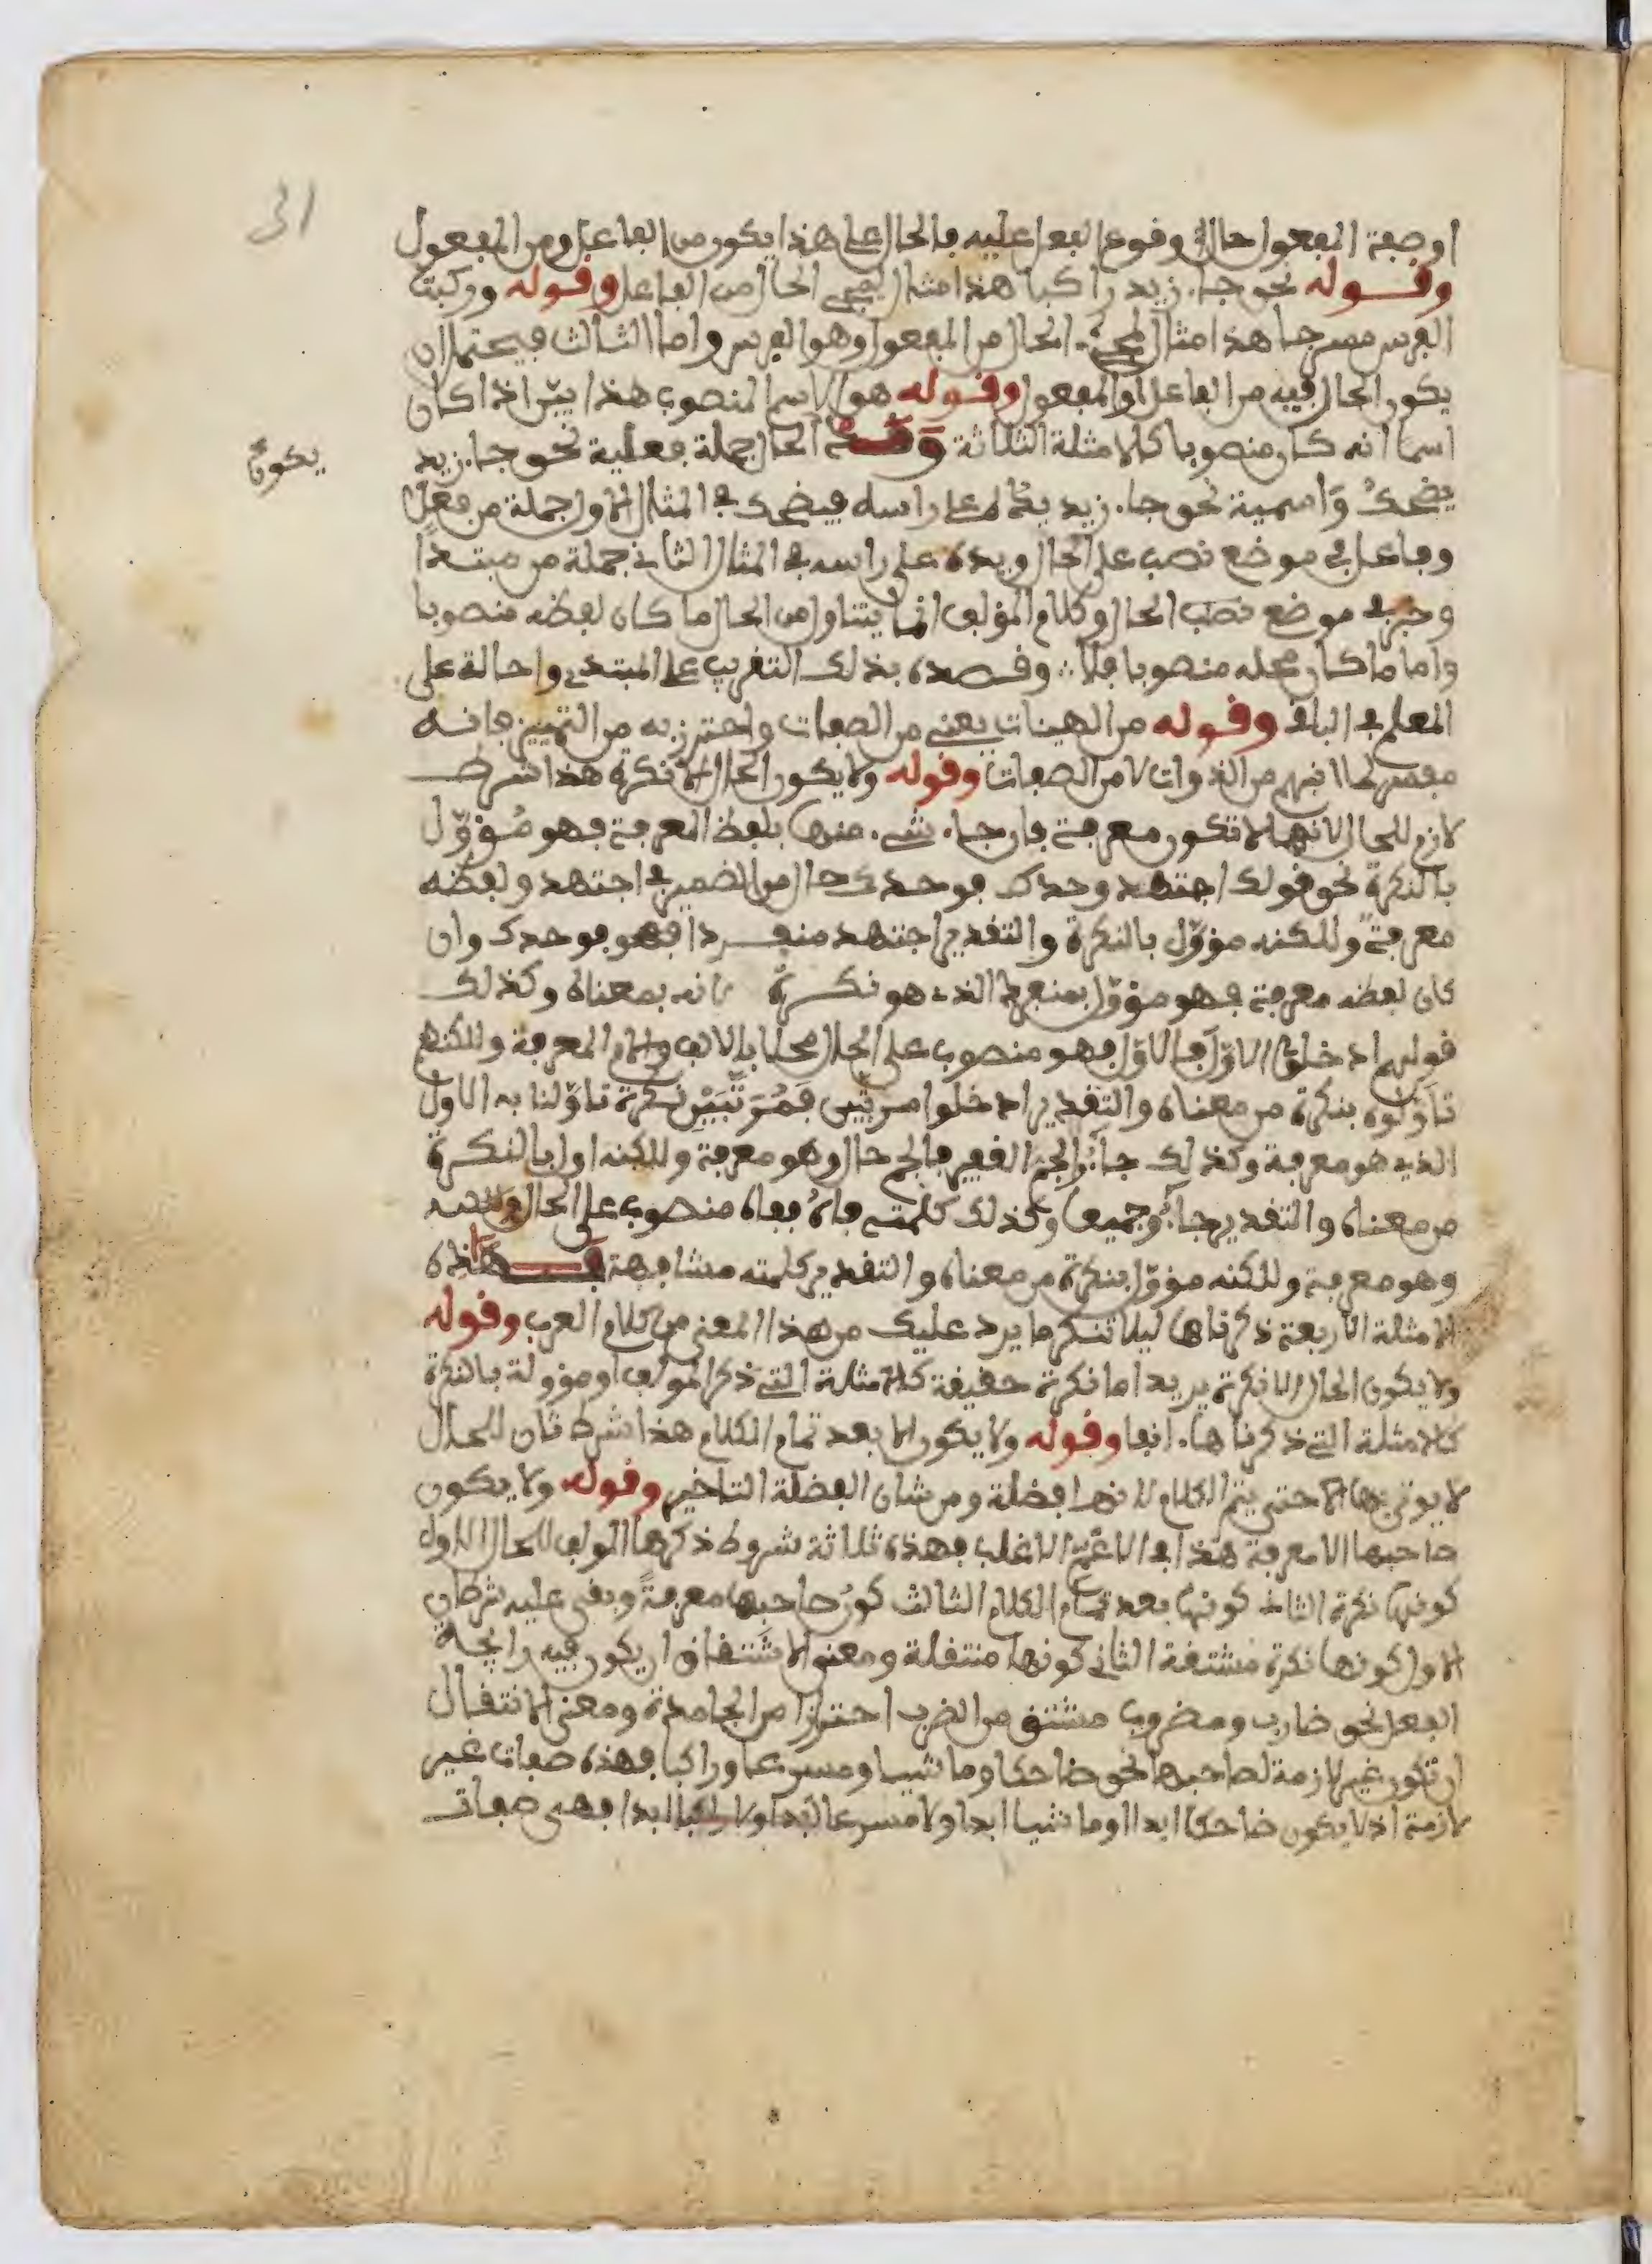 31
او صفة المفعول حالة وقوع الفعل عليه فالحال على هذا يكون من الفاعل ومن المفعول
وقوله نحو جاء زيد راكبا هذا مثال لمجيء الحال من الفاعل وقوله وركبت
الفرس مسرجا هذا مثال لمجيء الحال من المفعول وهو الفرس واما الثالث فيحتمل ان
يكون الحال فيه من الفاعل او المفعول وقوله هو الاسم المنصوب هذا بيّن اذا كان
اسما انه كان منصوبا كالامثلة الثلاثة وقد الحال جملة فعلية نحو جاء زيد
يكون
يضحك واسمية نحو جاء زيد يده على راسه فيضحك في المثال الاول جملة من فعل
وفاعل في موضع نصب على الحال ويده على راسه في المثال الثاني جملة من مبتدا
وخبر في موضع نصب الحال وكلام المؤلف انما يتناول من الحال ما كان لفظه منصوبا
واما ما كان محله منصوبا فلا وقصده بذلك التقريب على المبتدي واحالة على
المعلم في الباقي وقوله من الهيئات يعني من الصفات واحترز به من التمييز فانه
مفسر لما انبهم من الذوات لا من الصفات وقوله ولا يكون الحال الا نكرة هذا شرط
لازم للحال لانها لا تكون معرفة فان جاء شيء منها بلفظ المعرفة فهو مُؤوّل
بالنكرة نحو قولك اجتهد وحدك فوحدك حال من الضمير في اجتهد ولفظه
معرفة وللكنه مؤوّل بالنكرة والتقدير اجتهد منفردا فهو فوحدك وان
كان لفظه معرفة فهو مؤوّل بمنفرد الذي هو نكرة لانه بمعناه وكذلك
قولهم ادخلوا الاوّل فالاوّل فهو منصوب على الحال محلا بالالف واللام المعرفة وللكنهم
تاوّلوه بنكرة من معناه والتقدير ادخلوا مرتّبين فمُرَتّبَيْن نكرة تاوّلنا به الاول
الذي هو معرفة وكذلك جاءُوا الجمّ الغفير فالجم حال وهو معرفة وللكنه اول بالنكرة
من معناه والتقدير جاءُو جميعا وكذلك كلمته فاهُ ففاه منصوب على الحال
وهو معرفة وللكنه مؤوّل بنكرة من معناه والتقدير كلمته مشافهة فهذه
الامثلة الاربعة ذكرناها ليلا تنكر ما يرد عليك من هذا المعنى من كلام العرب وقوله
ولا يكون الحال الا نكرة يريد اما نكرة حقيقة كالامثلة التي ذكر المولف او مؤولة بالنكرة
كالامثلة التي ذكرناها انفا وقوله ولا يكون الا بعد تمام الكلام هذا شرط ثان للحال
لا يوتى بها الا حتى يتم الكلام لانها فضلة ومن شان الفضلة التاخير وقوله ولا يكون
صاحبها الا معرفة هذا في الاعمّ الاغلب فهذه ثلاثة شروط ذكرها المولف للحال الاول
كونها نكرة الثاني كونها بعد تمام الكلام الثالث كون صاحبها معرفةً وبقي عليه شرطان
الاول كونها نكرة مشتقة الثاني كونها منتقلة ومعنى الاشتقاق ان يكون فيه رايحة
الفعل نحو ضارب ومضروب مشتق من الضرب احترازا من الجامدة ومعنى الانتقال
ان تكون غير لازمة لصاحبها نحو ضاحكا وماشيا ومسرعا وراكبا فهذه صفات غير
لازمة اذ لا يكون ضاحكا ابدا او ماشيا ابدا ولا مسرعا ابدا ولا راكبا ابدا فهي صفات